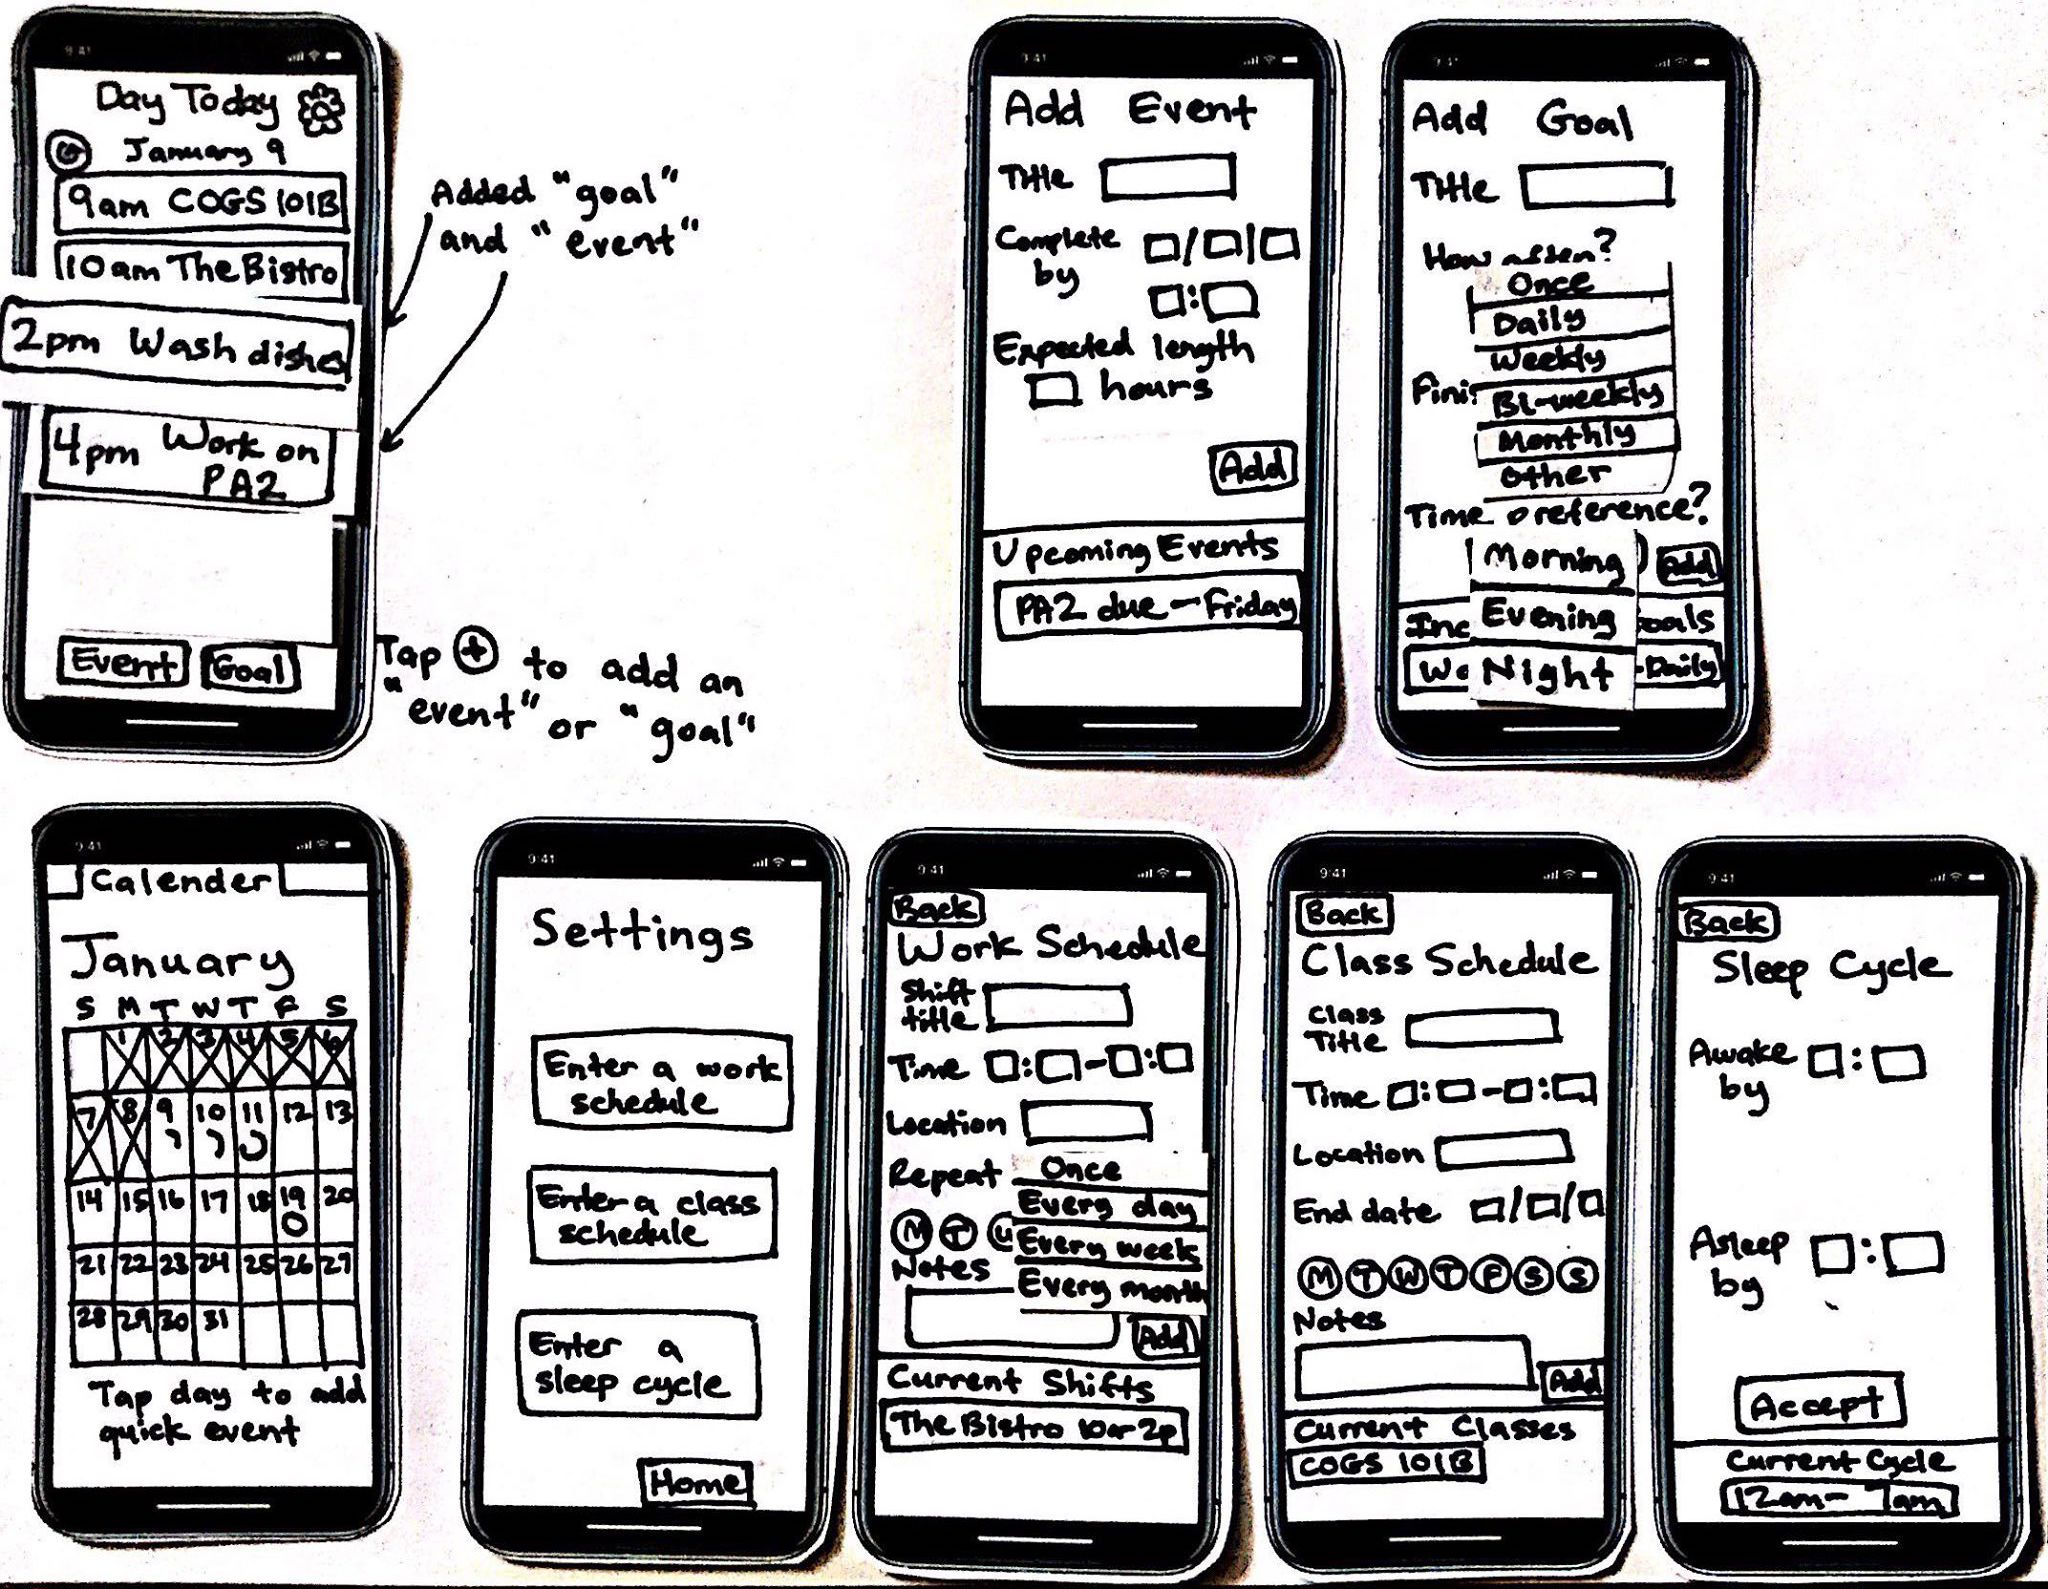 9:41
Day Today
January 9
9am COGS 101B
10am The Bistro
2pm Wash dishes
4pm Work on
PA2
Event Goal
Added "goal"
and "event"
Tap + to add an
"event" or "goal"
9:41
Add Event
Title
Complete
by
/ /
:
Expected length
hours
Add
Upcoming Events
PA2 due - Friday
9:41
Add Goal
Title
How often?
Once
Daily
Weekly
Bi-weekly
Monthly
Other
Time preference?
Morning
Add
Evening
Night
-Daily
9:41
Calender
January
S M T W T F S
1 2 3 4 5 6
7 8 9 10 11 12 13
14 15 16 17 18 19 20
21 22 23 24 25 26 27
28 29 30 31
Tap day to add
quick event
9:41
Settings
Enter a work
schedule
Enter a class
schedule
Enter a
sleep cycle
Home
9:41
Back
Work Schedule
Shift
title
Time : - :
Location
Repeat Once
Every day
M T
Every week
Notes
Every month
Add
Current Shifts
The Bistro
9:41
Back
Class Schedule
Class
Title
Time : - :
Location
End date / /
M T W T F S S
Notes
Add
Current Classes
COGS 101B
9:41
Back
Sleep Cycle
Awake
by :
Asleep
by :
Accept
Current Cycle
12am - 7am